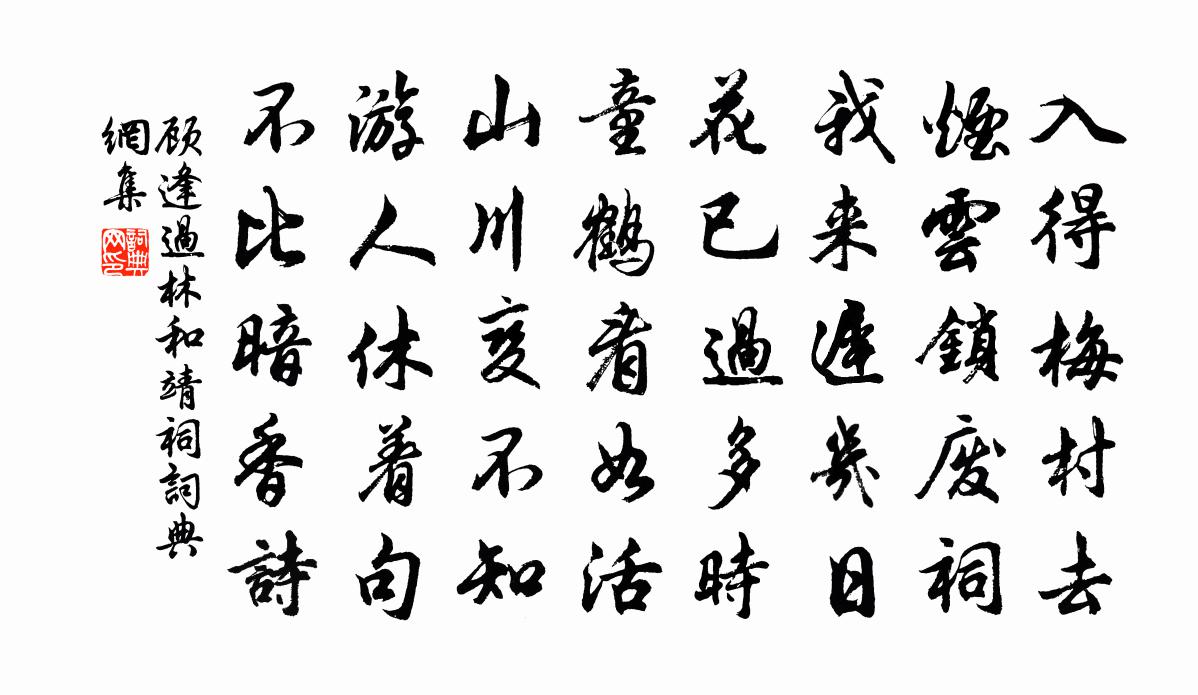 入得梅村去
煙雲鎖廢祠
我来遲幾日
花已過多時
童鶴看如活
山川変不知
游人休着句
不比暗香詩
顾逢過林和靖祠詞典
網集
詞典
网印